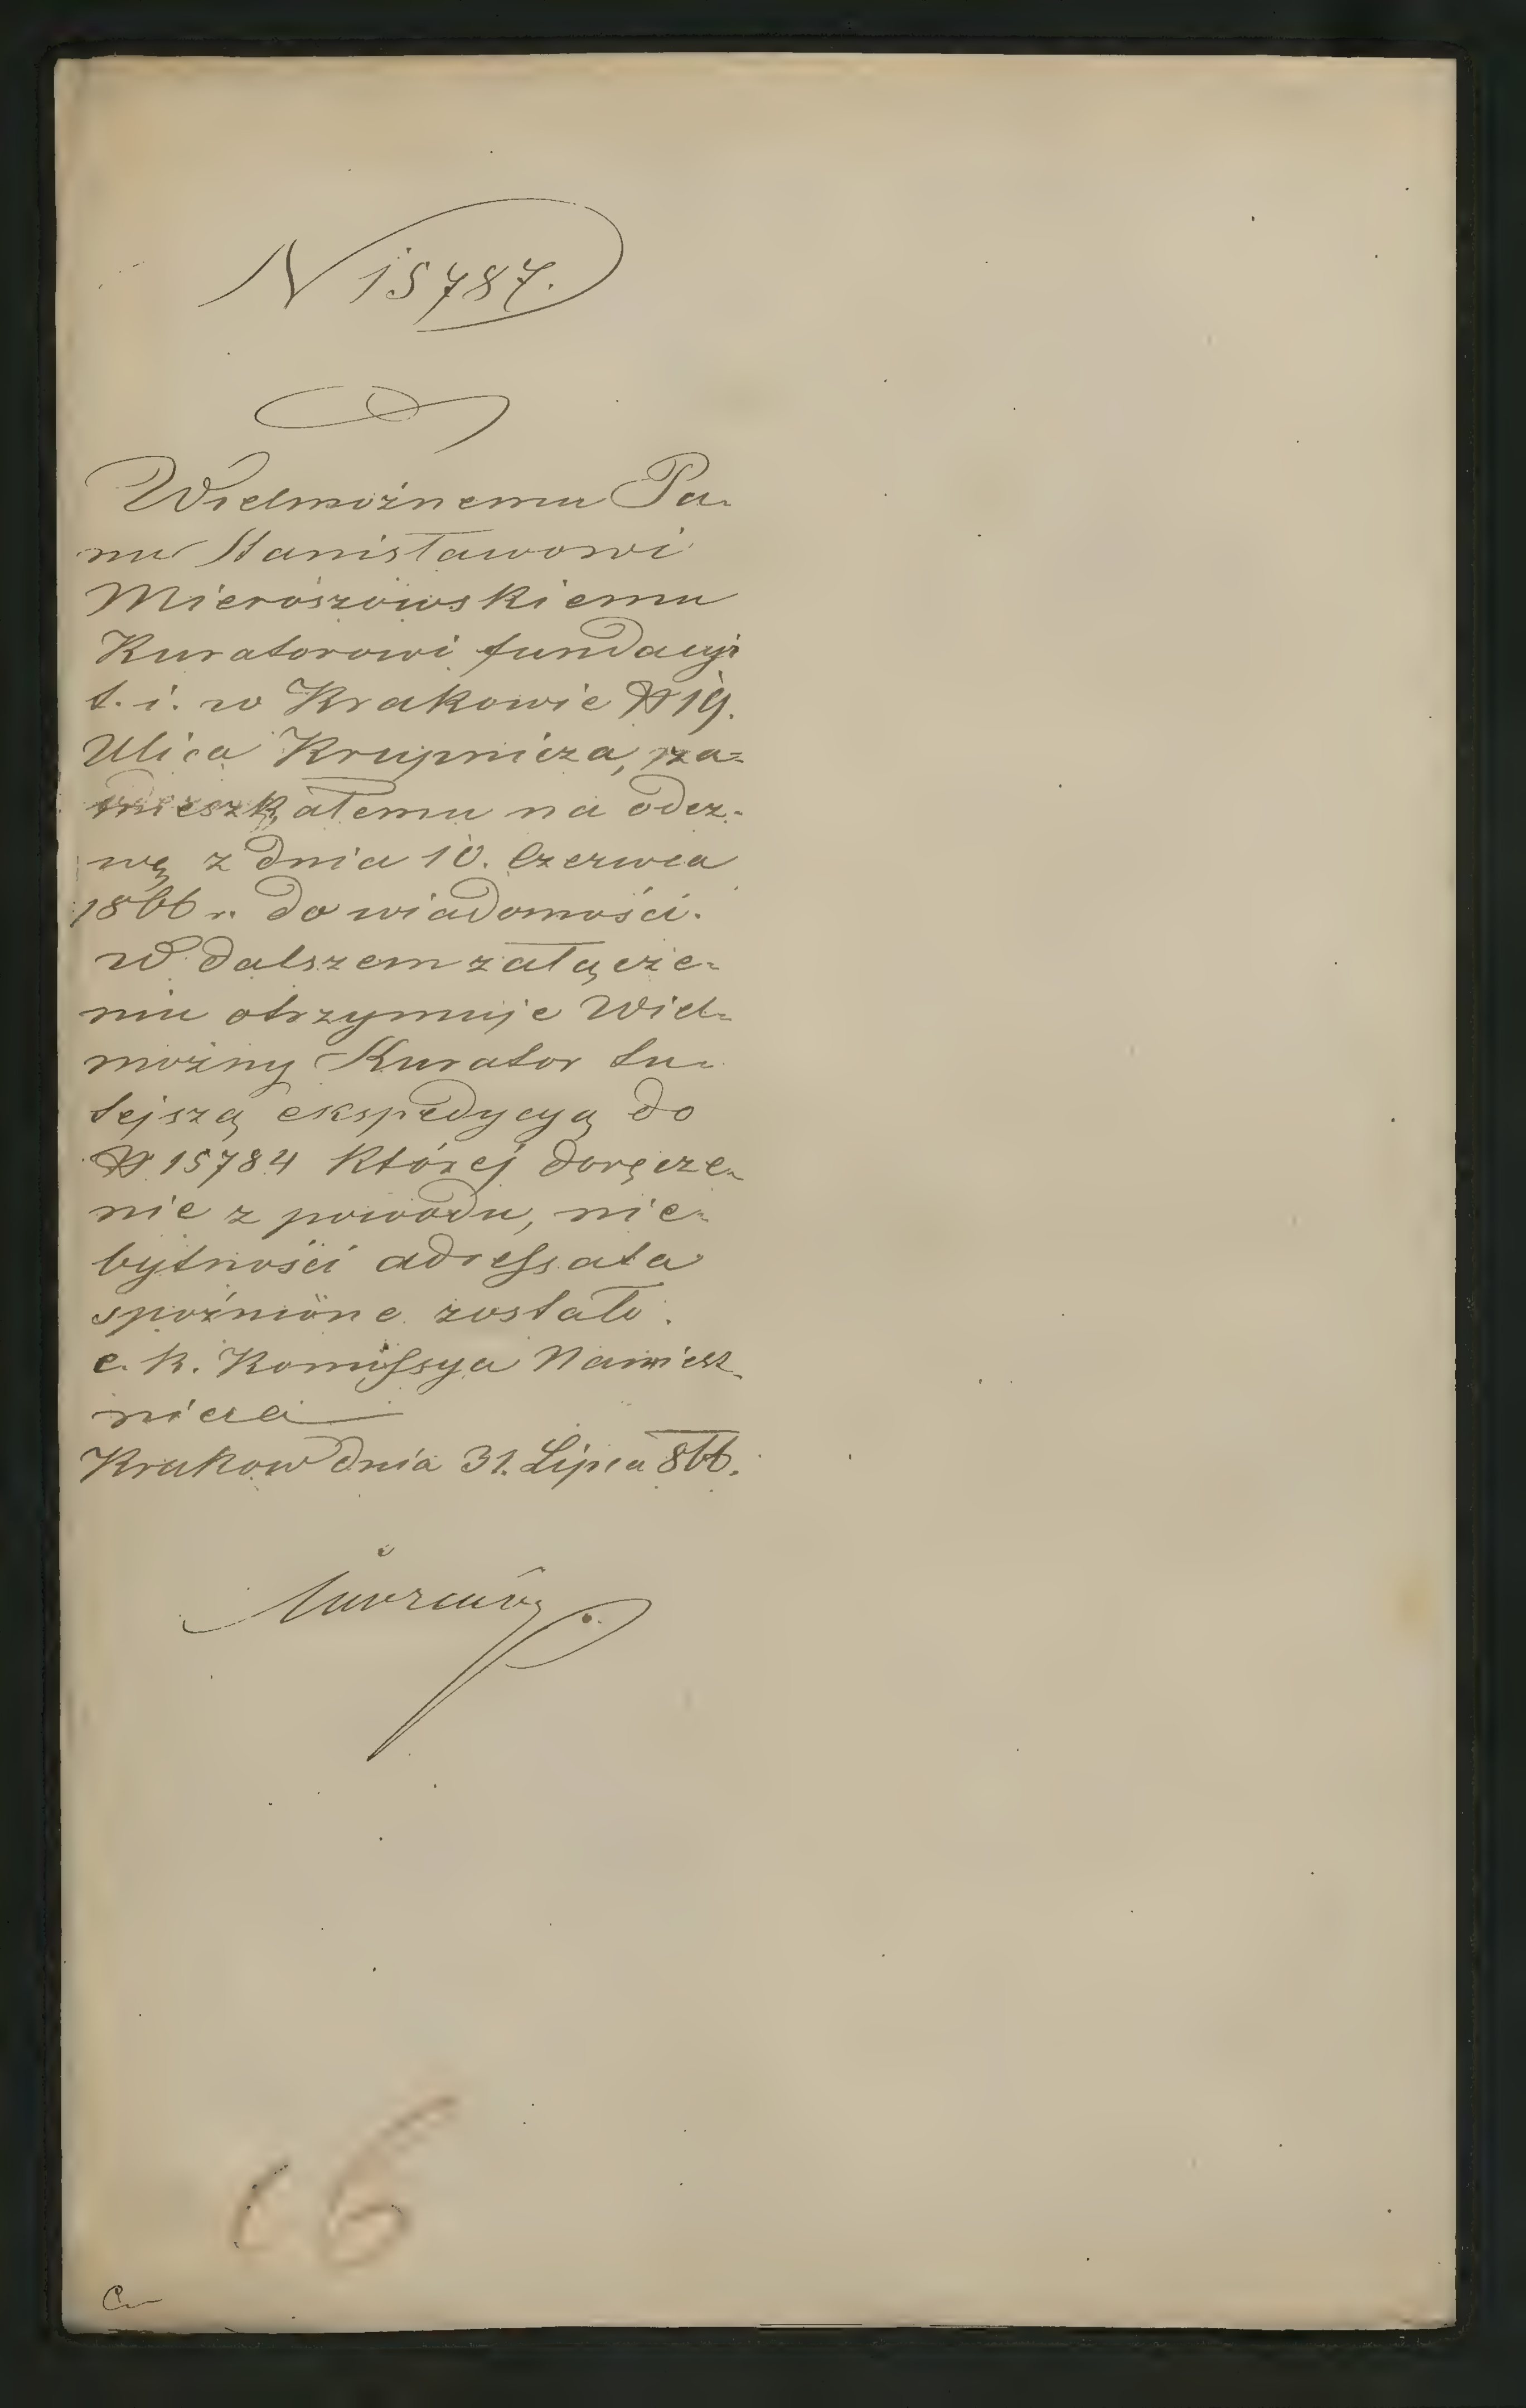 N 15787.
Wielmożnemu Pa-
nu Stanisławowi
Mieroszowskiemu
Kuratorowi fundacyi
t. i. w Krakowie N 19.
Ulica Krupnicza, za=
mieszkałemu na odez-
wę z dnia 10. Czerwca
1866 r. do wiadomości.
W dalszem załącze-
niu otrzymuje Wiel-
możny Kurator tu-
tejszą ekspedycyą do
N 15784 której doręcze-
nie z powodu, nie-
bytności adressata
spóźnione zostało.
c. k. Komissya Namiest-
nicza
Krakow dnia 31. Lipca 866.
66